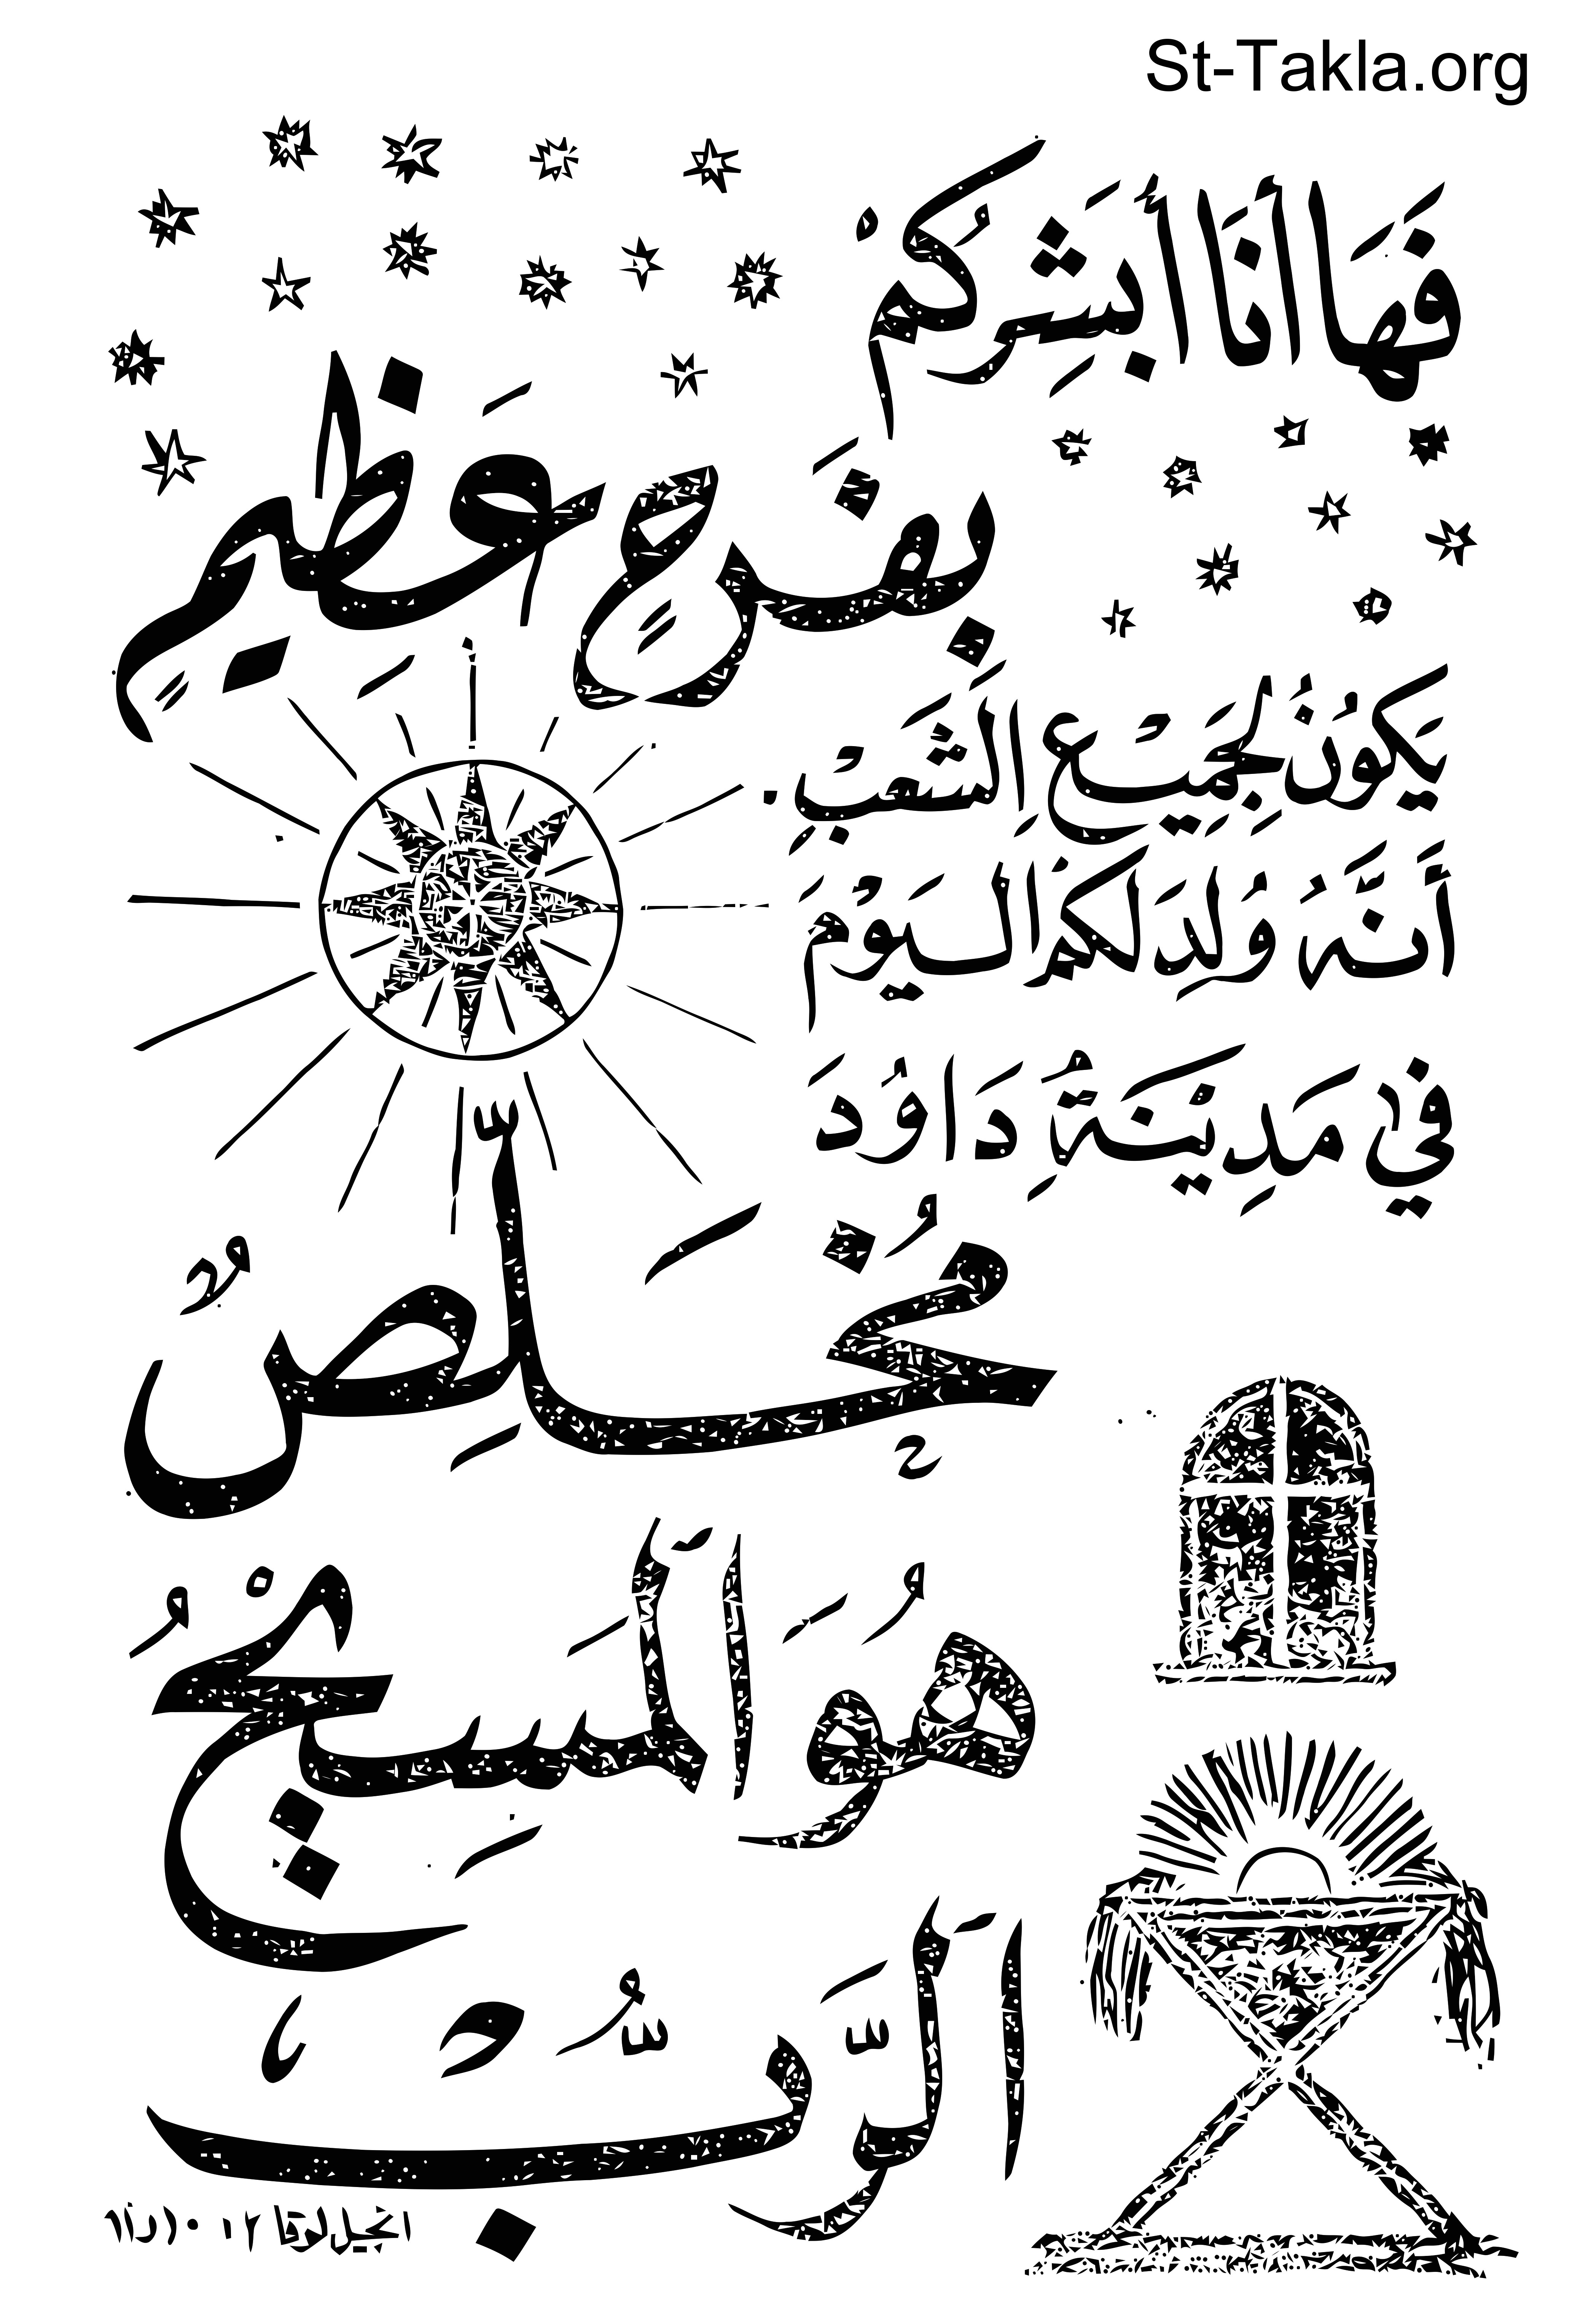 St-Takla.org
فَهَا أَنَا أُبَشِّرُكُمْ
بِفَرَحٍ عَظِيمٍ
يَكُونُ لِجَمِيْعِ الْشَّعْبِ.
أَنَّهُ وُلِدَ لَكُمْ الْيَوْمَ
فِي مَدِيْنَةِ دَاوُدَ
مُخَلِّصٌ
هُوَ الْمَسِيْحُ
الرَّبُّ
انجيل لوقا ٢: ١٠ و١١